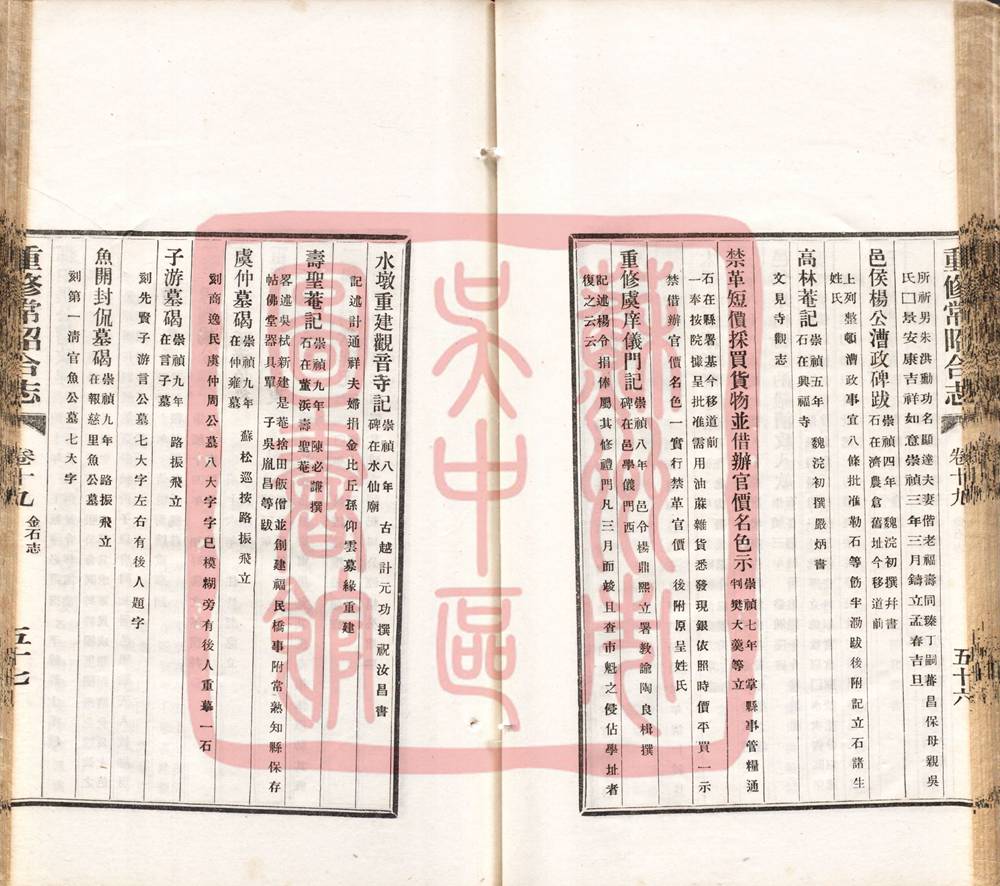 重修常昭合志 卷十九
五十六
所祈男朱洪動功名顯達夫妻偕老福壽同臻丁嗣蕃昌保母親吳
氏囗景安康吉祥如意崇禎三年三月鑄立孟春吉旦
邑侯楊公漕政碑跋 崇禎四年 魏浣初撰并書
石在濟農倉舊址今移道前
上列整頓漕政事宜八條批准勒石等飭半泐跋後附記立石諸生
姓氏
高林菴記 崇禎五年 魏浣初撰嚴炳書
石在興福寺
文見寺觀志
禁革短價採買貨物並借辦官價名色示 崇禎七年 掌縣事管糧通
判樊大羹等立
石在縣署基今移道前
一奉按院據呈批准需用油蔴雜貨悉發現銀依照時價平買一示
禁借辦官價名色一實行禁革官價 後附原呈姓氏
重修虞庠儀門記 崇禎八年 邑令楊鼎熙立署教諭陶良楫撰
碑在邑學儀門西
記述楊令捐俸屬其修禮門凡三月而竣且查市魁之侵佔學址者
復之云云
水墩重建觀音寺記 崇禎八年 古越計元功撰祝汝昌書
碑在水仙廟
記述計通祥夫婦捐金比丘孫仰雲募緣重建
壽聖菴記 崇禎九年 陳必謙撰
石在董浜壽聖菴 子吳胤昌等跋
畧述吳栻新建是菴捨田飯僧並創建福民橋事附常熟知縣保存
帖佛堂器具單
虞仲墓碣 崇禎九年 蘇松巡按路振飛立
在仲雍墓
刻商逸民虞仲周公墓八大字字已模糊旁有後人重摹一石
子游墓碣 崇禎九年 路振飛立
在言子墓
刻先賢子游言公墓七大字左右有後人題字
魚開封侃墓碣 崇禎九年 路振飛立
在報慈里魚公墓
刻第一淸官魚公墓七大字
重修常昭合志 卷十九 金石志
五十七
蘇州市
吳中區
圖書館